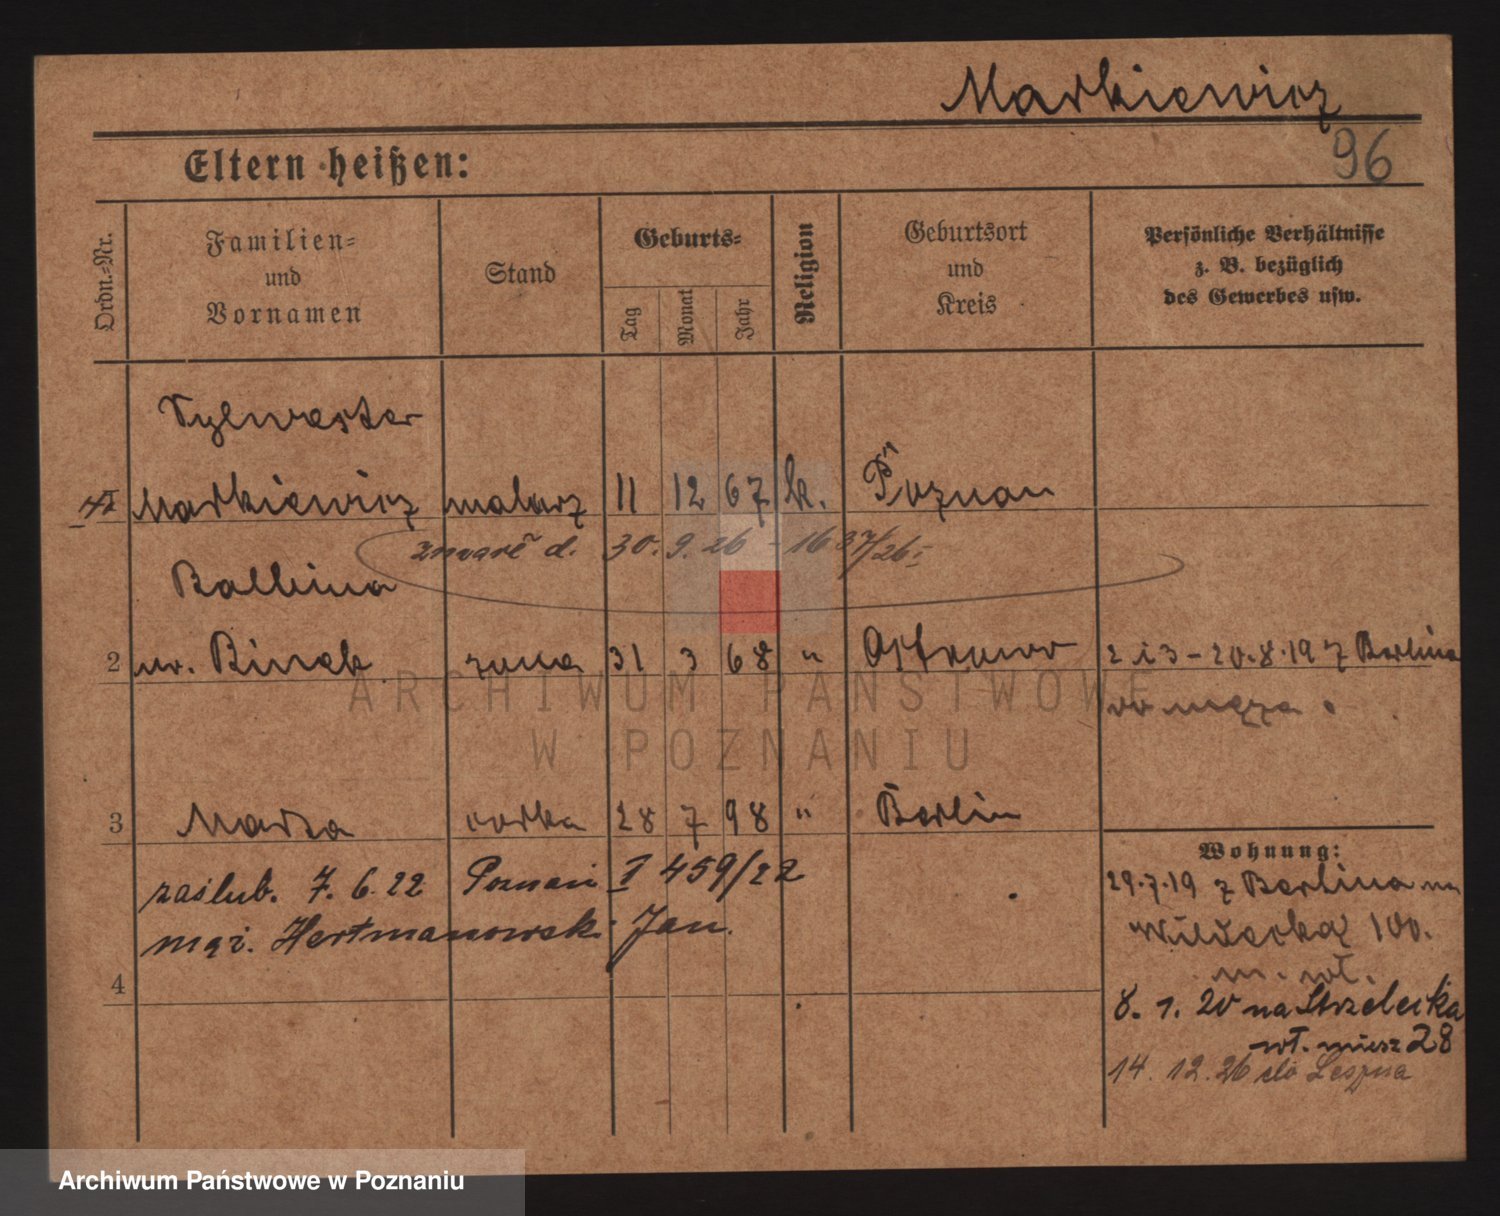 Markiewicz
96
Eltern heißen:
Ordn.-Nr.
Familien-
und
Vornamen
Stand
Geburts-
Tag
Monat
Jahr
Religion
Geburtsort
und
Kreis
Persönliche Verhältnisse
z. B. bezüglich
des Gewerbes usw.
Sylwester
Markiewicz malarz 11 12 67 k. Poznań
zmarł d. 30. 9. 26 - 1637/26
Balbina
2 ur. Binek żona 31 3 68 " Ostrowo 2 i 3 - 20.8.19 z Berlina
do męża.
3 Marta córka 28 7 98 " Berlin
Wohnung:
zaślub. 7. 6. 22 Poznań I 459/22
29.7.19 z Berlina na
Hertmanowski Jan.
100.
4
8. 1. 20 na Strzelecka
28
14. 12. 26 do Leszna
ARCHIWUM PAŃSTWOWE
W POZNANIU
Archiwum Państwowe w Poznaniu